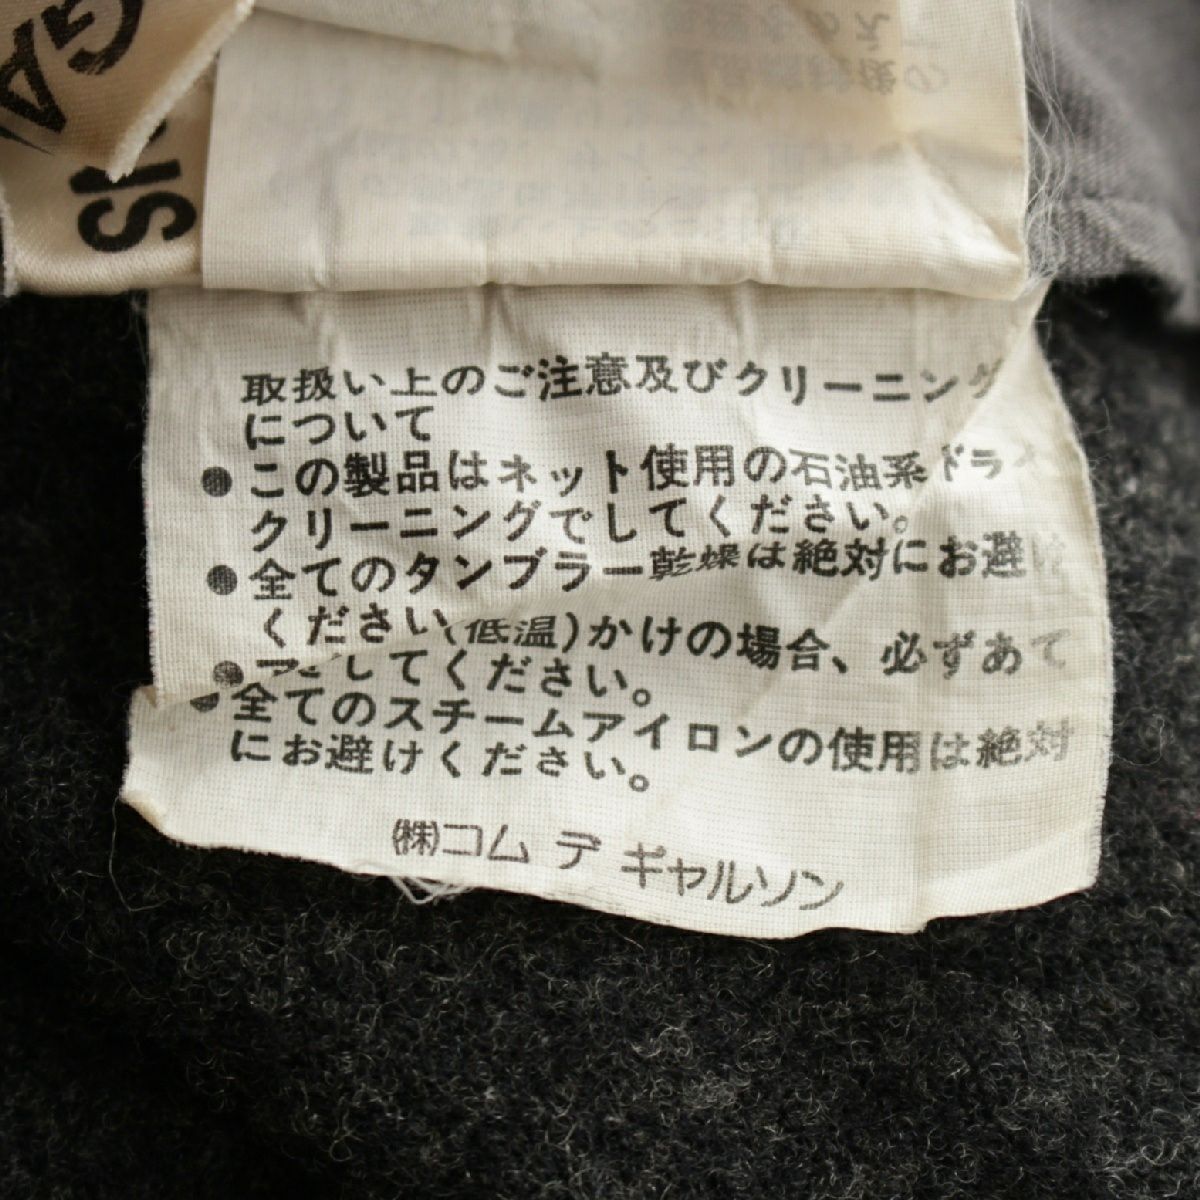 取扱い上のご注意及びクリーニング
について
●この製品はネット使用の石油系ドライ
クリーニングでしてください。
●全てのタンブラー乾燥は絶対にお避け
ください
(低温)かけの場合、必ずあて
してください。
●全てのスチームアイロンの使用は絶対
にお避けください。
㈱コム デ ギャルソン